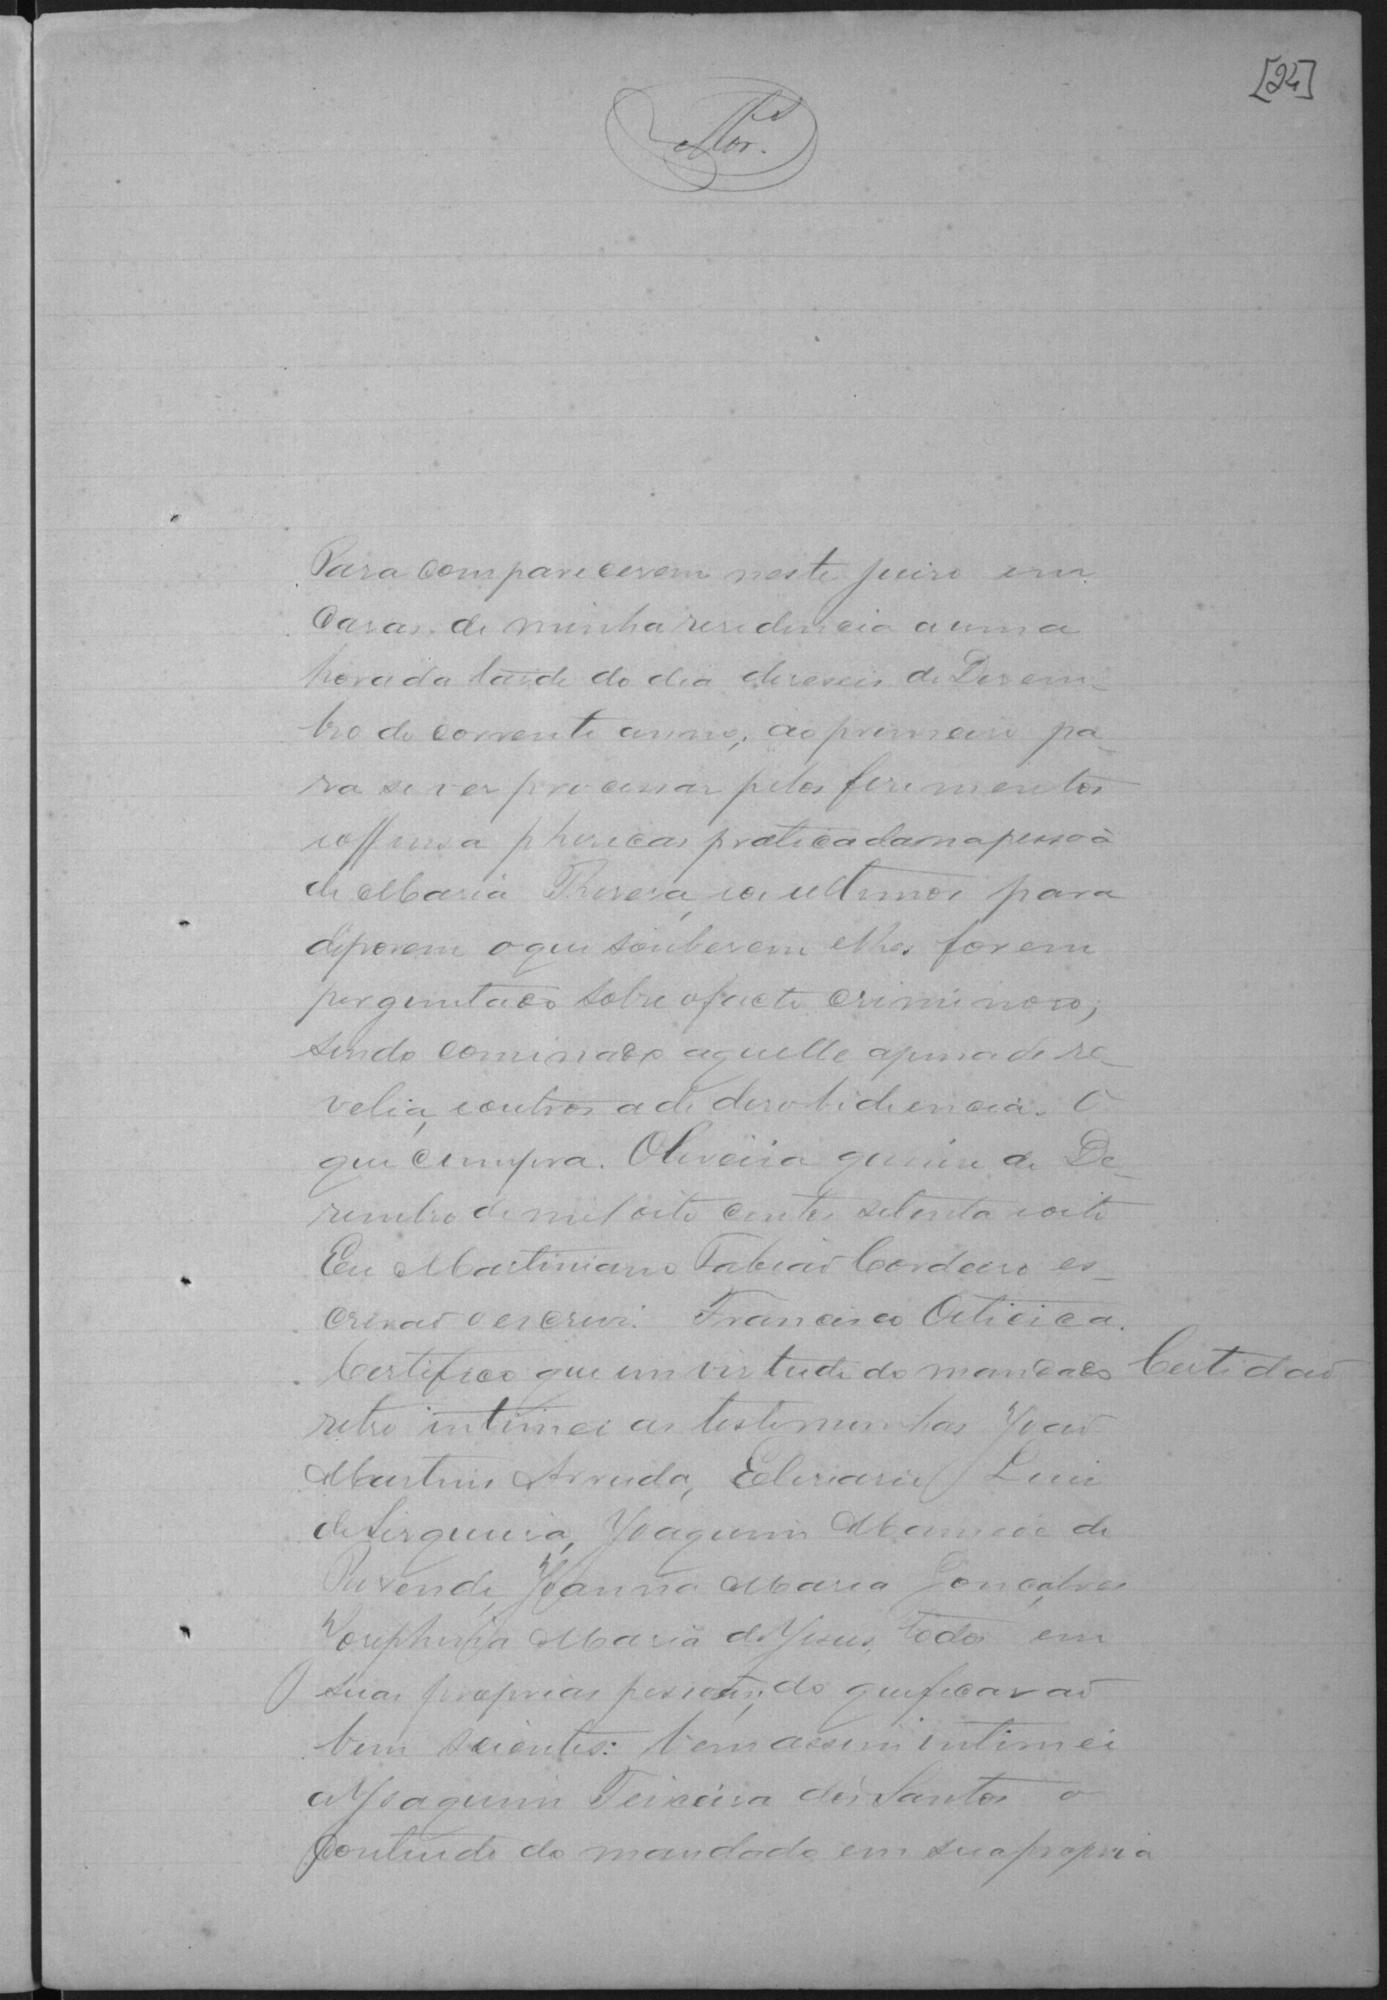 [24]
Para comparecerem neste juizo em
Casas de minha residencia a uma
hora da tarde do dia deseseis de Dezem-
bro do corrente anno, ao primeiro pa-
ra se ver processar pelos ferimentos
e offensa phisicas praticadas na pessoa
de Maria Thereza, e os ultimos para
deporem o que souberem e lhes forem
perguntado sobre o facto criminoso,
sendo cominado aquelle a pena de re-
velia, e outros a de desobidiencia. O
que cumpra. Oliveira quinse de De-
zembro de mil oito centos setenta e oito
Eu Martiniano Fabiaõ Cordeiro es-
crivaõ o escrevi. Francisco Oiticica.
Certifico que em virtude do mandado Certidaõ
retro intimei as testemunhas Joaõ
Martins Arruda, Elisiario Luis
de Sirqueira, Joaquim Mauricio de
Rezende, Joanna Maria Gonçalves
Josephina Maria de Jesus, todos em
suas proprias pessoas, do que ficaraõ
bem scientes: bem assim intimei
a Joaquim Teixeira dos Santos o
contiudo do mandado em sua propria